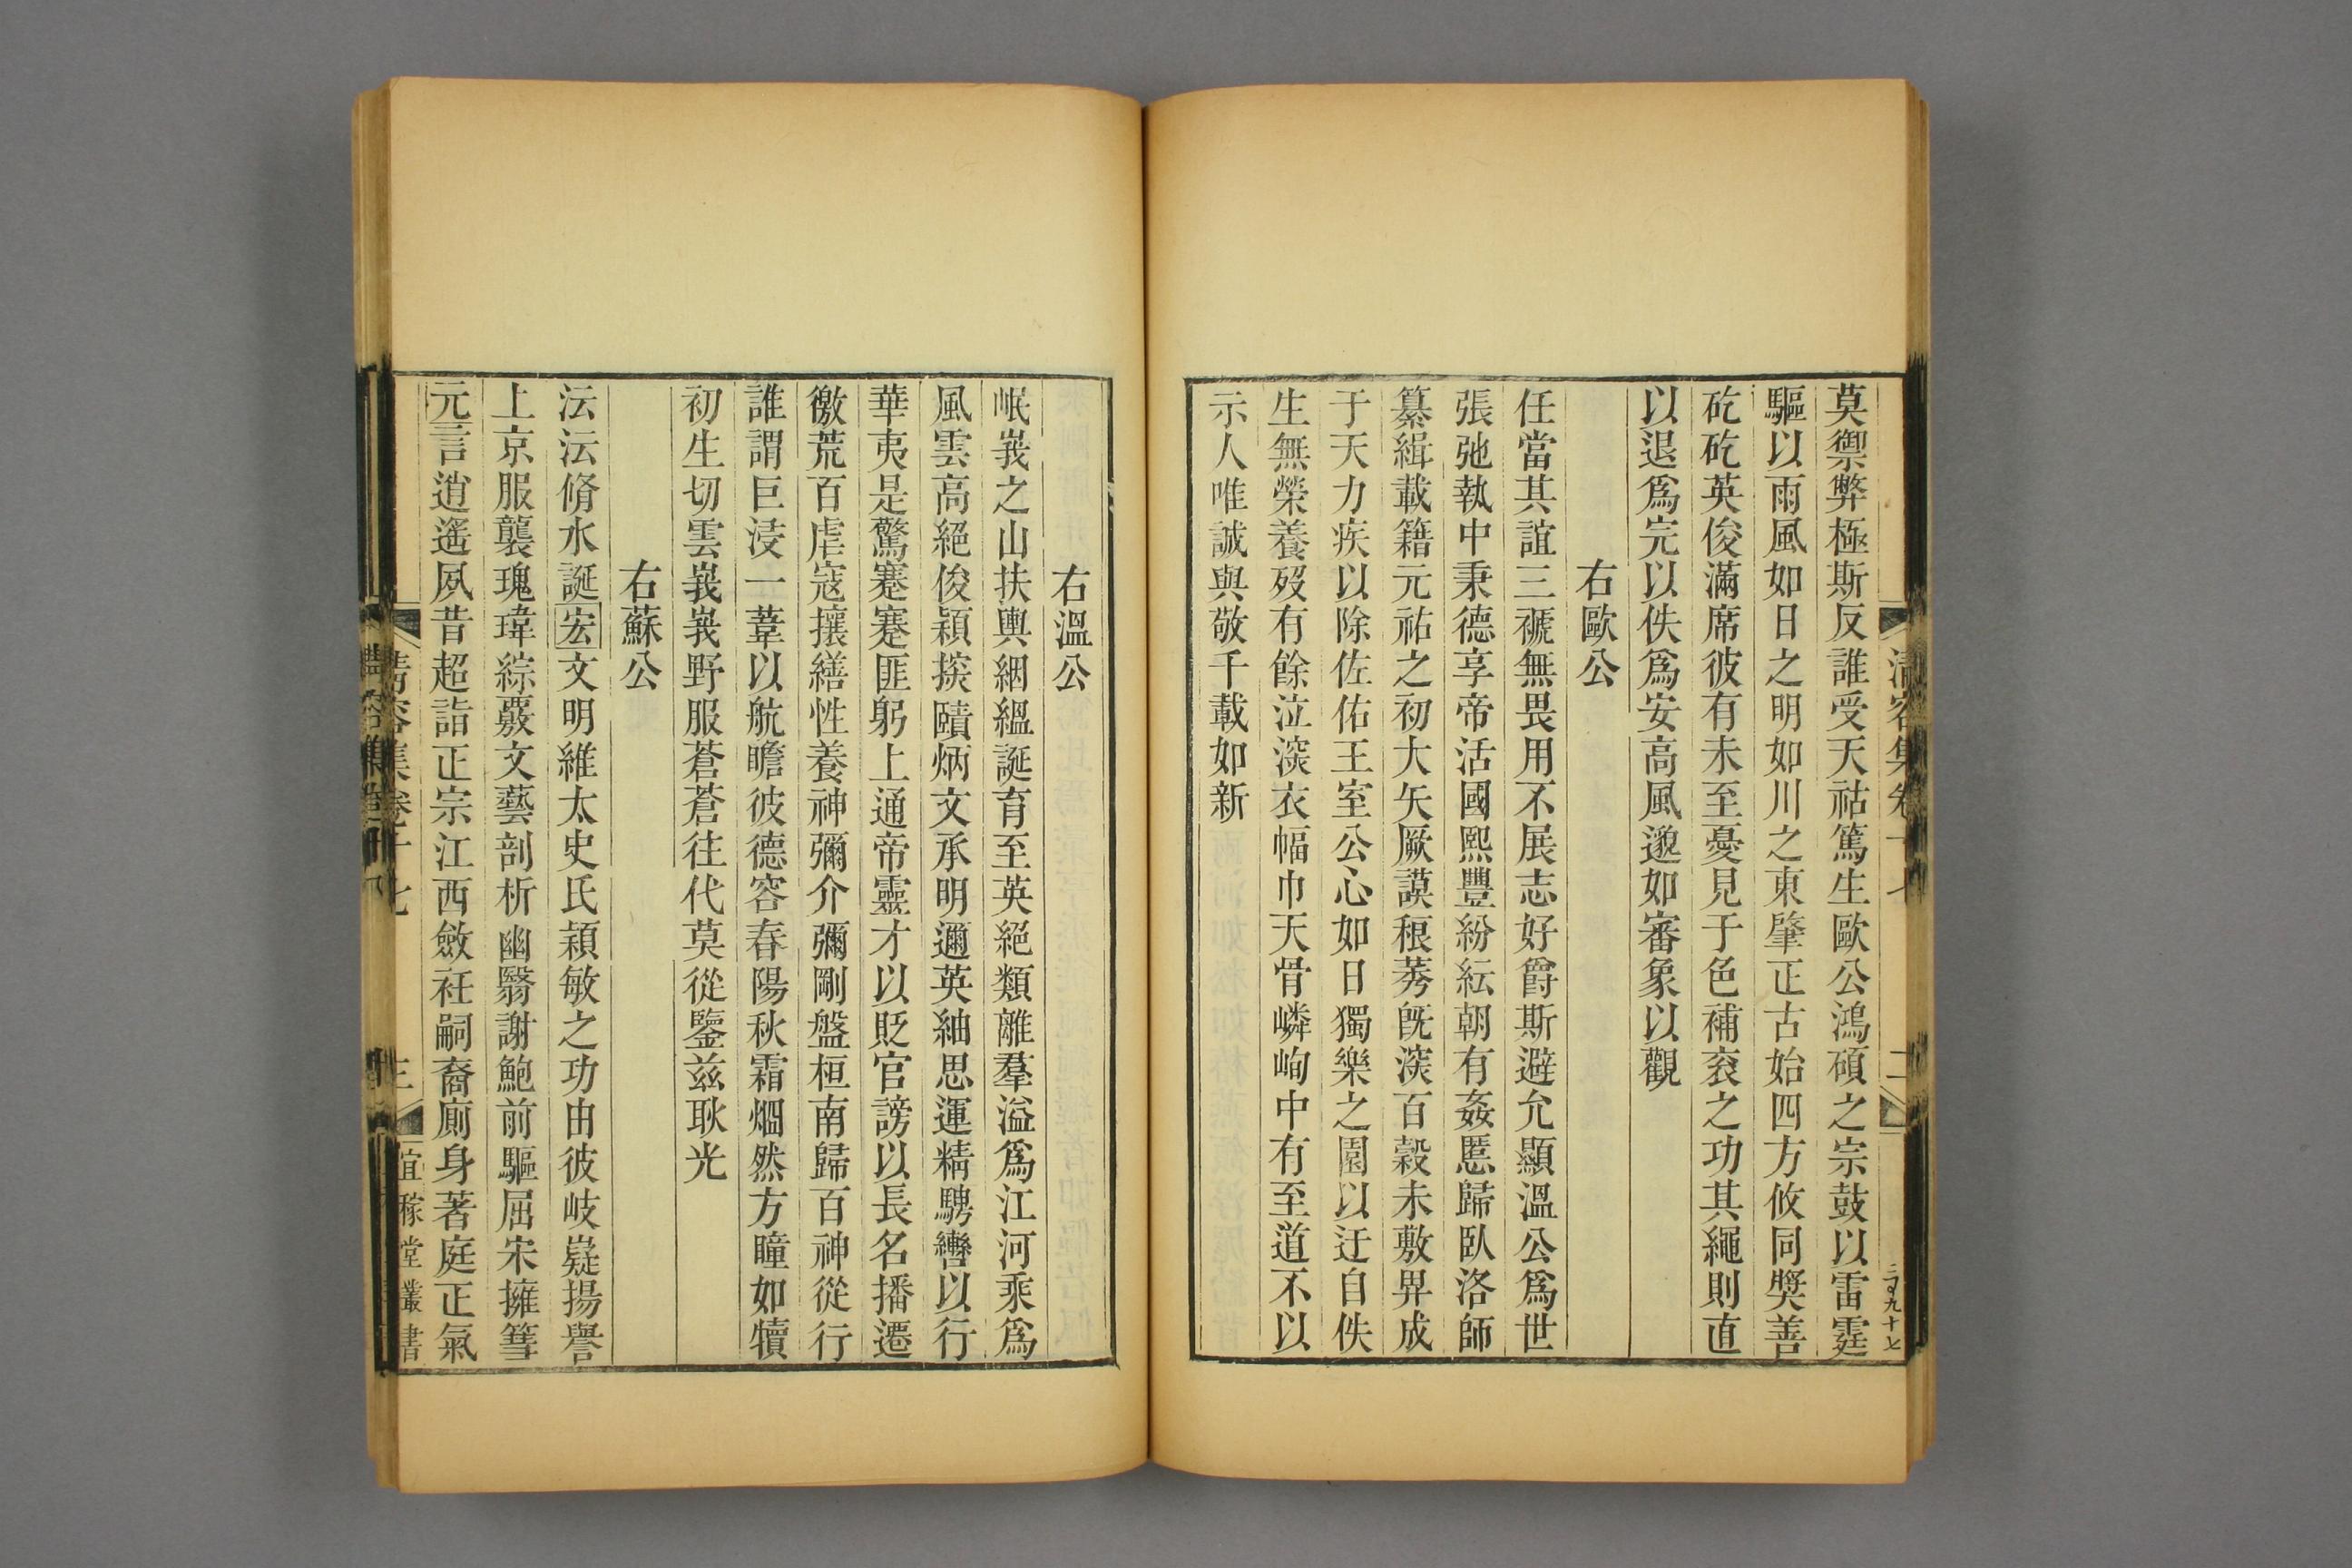 清容集卷十七
二
莫禦弊極斯反誰受天祜篤生歐公鴻碩之宗鼓以雷霆
驅以雨風如日之明如川之東肇正古始四方攸同獎善
矻矻英俊滿席彼有未至憂見于色補衮之功其繩則直
以退爲完以佚爲安高風邈如審象以觀
右歐公
任當其誼三褫無畏用不展志好爵斯避允顯溫公爲世
張弛執中秉德享帝活國熙豐紛紜朝有姦慝歸臥洛師
纂緝載籍元祐之初大矢厥謨稂莠旣深百穀未敷畀成
于天力疾以除佐佑王室公心如日獨樂之園以迂自佚
生無榮養殁有餘泣深衣幅巾天骨嶙峋中有至道不以
示人唯誠與敬千載如新
右溫公
岷峩之山扶輿絪縕誕育至英絕類離羣溢爲江河乘爲
風雲高絕俊穎探賾炳文承明邇英紬思運精騁轡以行
華夷是驚蹇蹇匪躬上通帝靈才以貶官謗以長名播遷
徼荒百虐寇攘繕性養神彌介彌剛盤桓南歸百神從行
誰謂巨浸一葦以航瞻彼德容春陽秋霜烱然方瞳如犢
初生切雲峩峩野服蒼蒼往代莫從鑒兹耿光
右蘇公
沄沄脩水誕宏文明維太史氏穎敏之功由彼岐嶷揚譽
上京服襲瑰瑋綜覈文藝剖析幽翳謝鮑前驅屈宋擁篲
元言逍遙夙昔超詣正宗江西斂衽嗣裔廁身著庭正氣
清容集卷十七
三
宜稼堂叢書